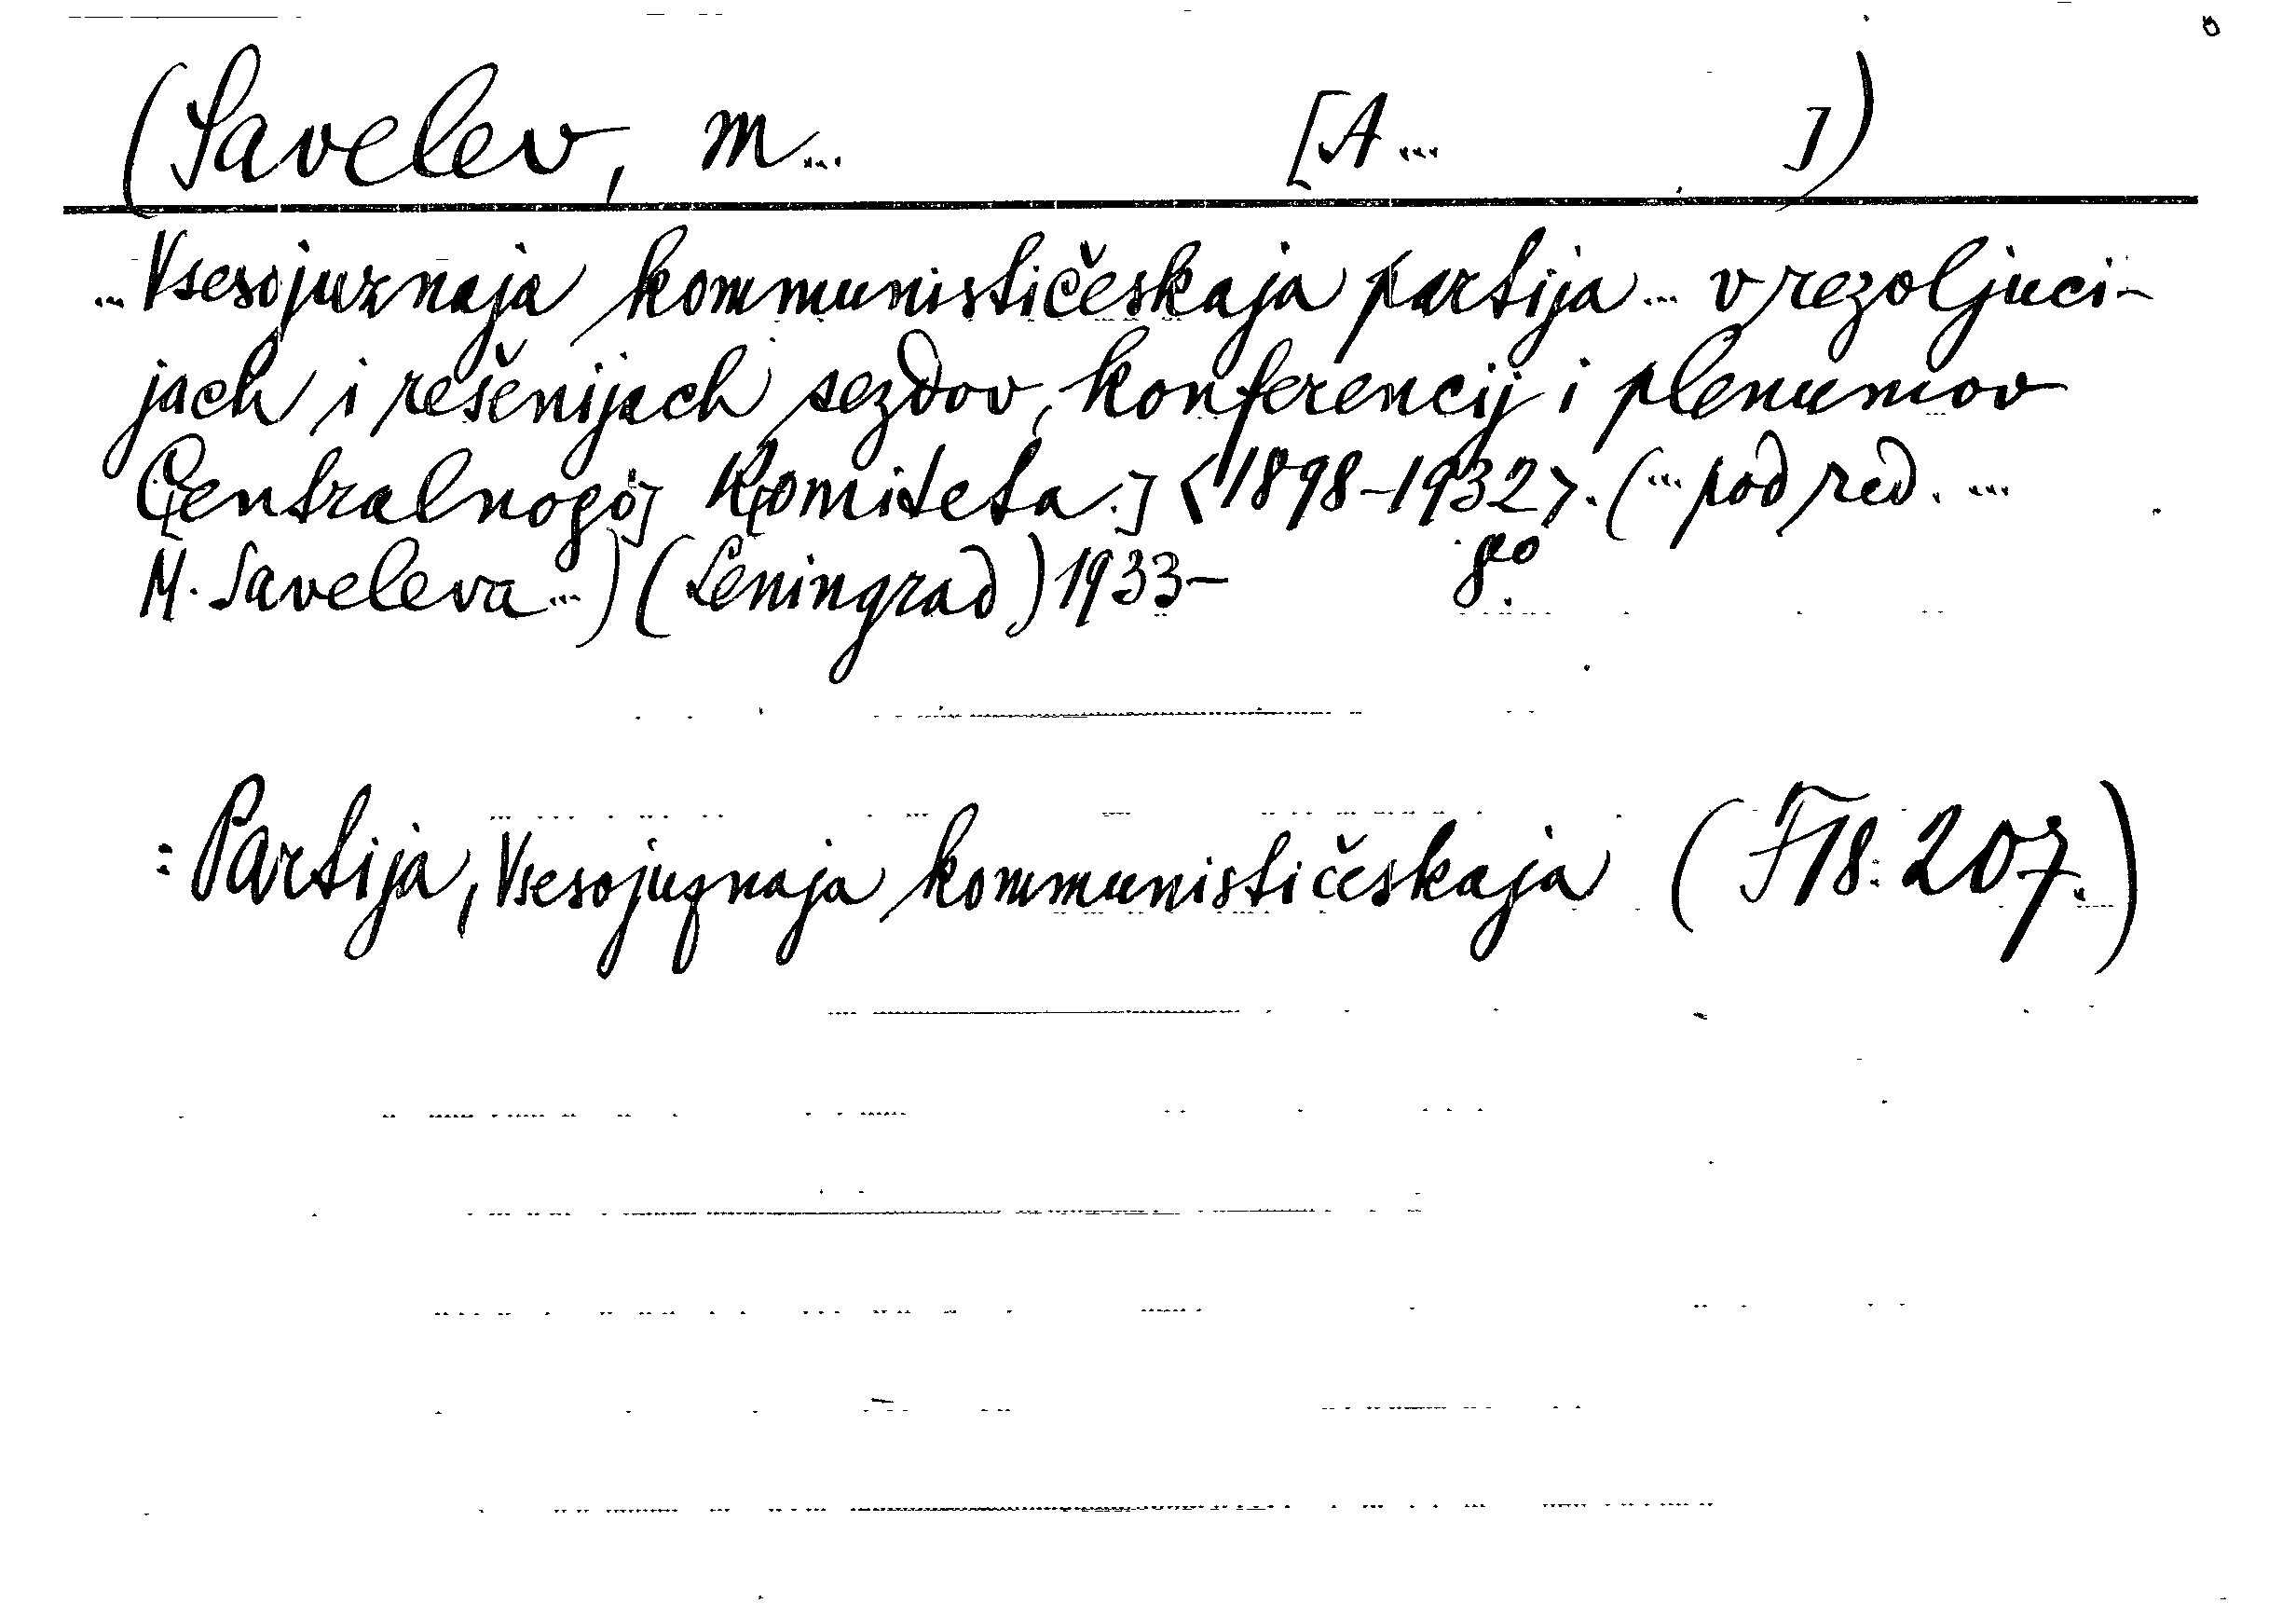 (Savelev, M... [A... ])
... Vsesojuznaja kommunističeskaja partija ... v rezoljuci-
jach i rešenijach sezdov, konferencij i plenumov
C[entralnogo] K[omiteta.] <1898-1932>. (... pod red. ...
M. Saveleva ...) (Leningrad) 1933- 8o.
: Partija, Vsesojuznaja kommunističeskaja (F18: 207.)